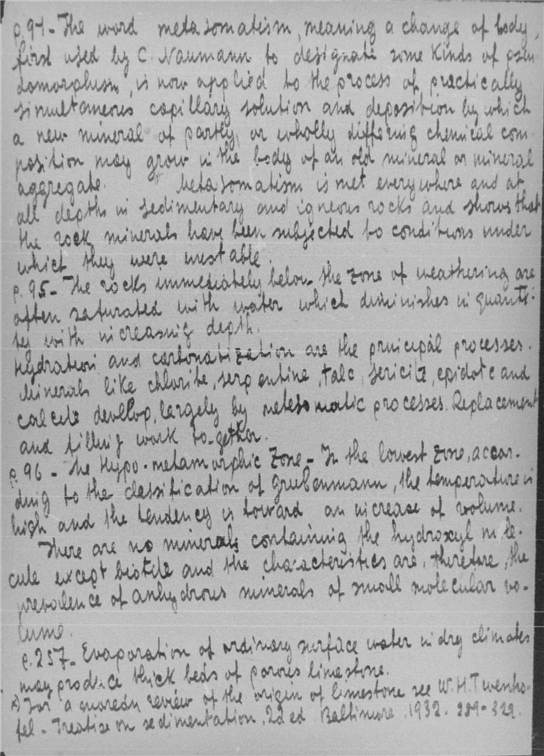 p. 94 - The word metasomatism, meaning a change of body,
first used by C. Naumann to designate some kinds of pseu-
domorphism, is now applied to the process of practically
simultaneous capillary solution and deposition by which
a new mineral of partly or wholly differing chemical com
position may grow in the body of an old mineral or mineral
aggregate. Metasomatism is met everywhere and at
all depths in sedimentary and igneous rocks and shows that
the rock minerals have been subjected to conditions under
which they were instable.
p. 95 - The rocks immediately below the zone of weathering are
often saturated with water which diminishes in quanti-
ty with increasing depth.
Hydration and carbonatization are the principal processes.
Minerals like chlorite, serpentine, talc, sericite, epidote and
calcite develop, largely by metasomatic processes. Replacement
and filling work together.
p. 96 - The Hypo-metamorphic Zone - In the lowest zone, accor-
ding to the classification of Grubenmann, the temperature is
high and the tendency is toward an increase of volume.
There are no minerals containing the hydroxyl mole-
cule except biotite and the characteristics are, therefore, the
prevalence of anhydrous minerals of small molecular vo-
lume.
p. 257 - Evaporation of ordinary surface water in dry climates
may produce thick beds of porous limestone.
For a review of the origin of limestone see W.H. Twenho-
fel - Treatise on sedimentation, 2d ed Baltimore 1932. 289-329.